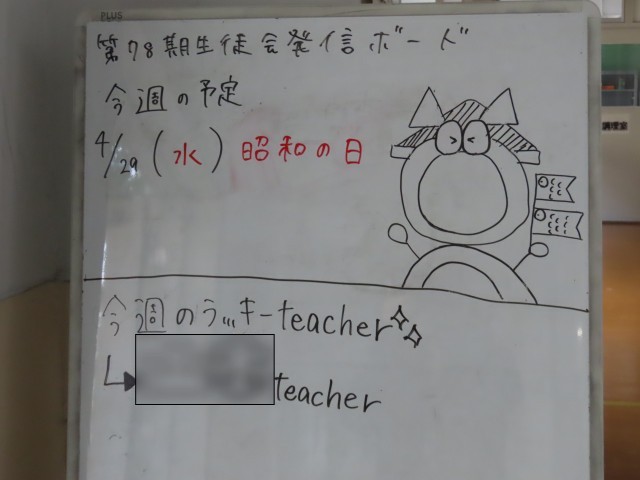 PLUS
第78期生徒会発信ボード
今週の予定
4/29(水) 昭和の日
調理室
今週のラッキーteacher
teacher